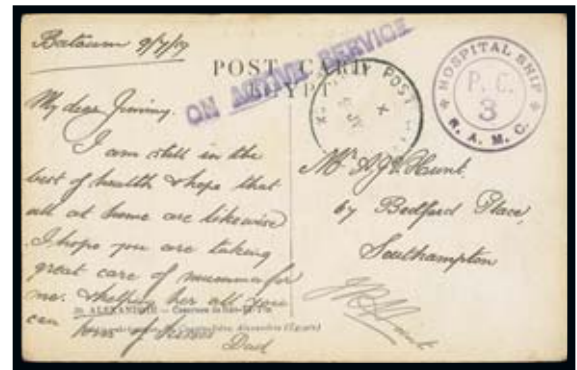 Batoum 9/7/19
POST CARD
EGYPT
ON ACTIVE SERVICE
POST
HOSPITAL SHIP
P. C.
3
R. A. M. C.
My dear Jimmy.
I am still in the
best of health & hope that
all at home are likewise
I hope you are taking
great care of mumma for
me. & helping her all you
can
Dad
Mr A.J.V. Hunt.
67 Bedford Place,
Southampton
20 ALEXANDRIE — Casernes de Ras-El-Tin
Alexandrie (Egypte)